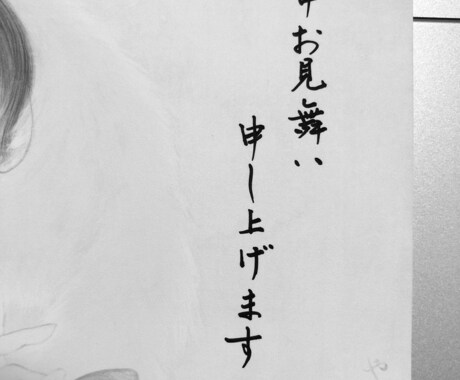 中お見舞い
申し上げます